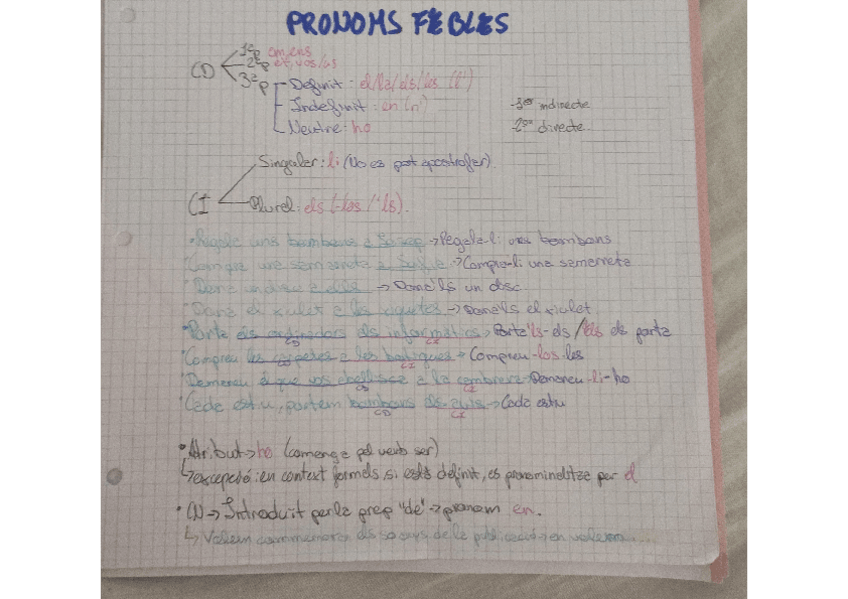 PRONOMS FEBLES
1ªp em, ens
CD 2ªp et, vos/us
3ªp Definit: el/la/els/les (l')
Indefinit: en (n')
Neutre: ho
-3er indirecte
-2on directe
Singular: li (No es pot apostrofar)
CI
Plural: els (-los /'ls).
•Regala uns bombons a → Regala-li uns bombons
Compra una samarreta a → Compra-li una samarreta
Dona un disc a → Dona'ls un disc
Dona el xiulet a les xiquetes → Dona'ls el xiulet
•Porta els ordinadors als informàtics → Porta'ls-els / els porta
CD CI
•Compreu les carpetes a les botigues → Compreu-los-les
CI
•Demaneu el que vos abellisca a la cambrera Demaneu-li-ho
CD CI
•Cada estiu, portem bombons als avis → Cada estiu
CD CI
•Atribut → ho (comença pel verb ser)
↳ excepció: en context formals si està definit, es pronominalitza per el
• CN → Introduït per la prep "de" → pronom en.
↳ Volien commemorar els 50 anys de la publicació → en volien....